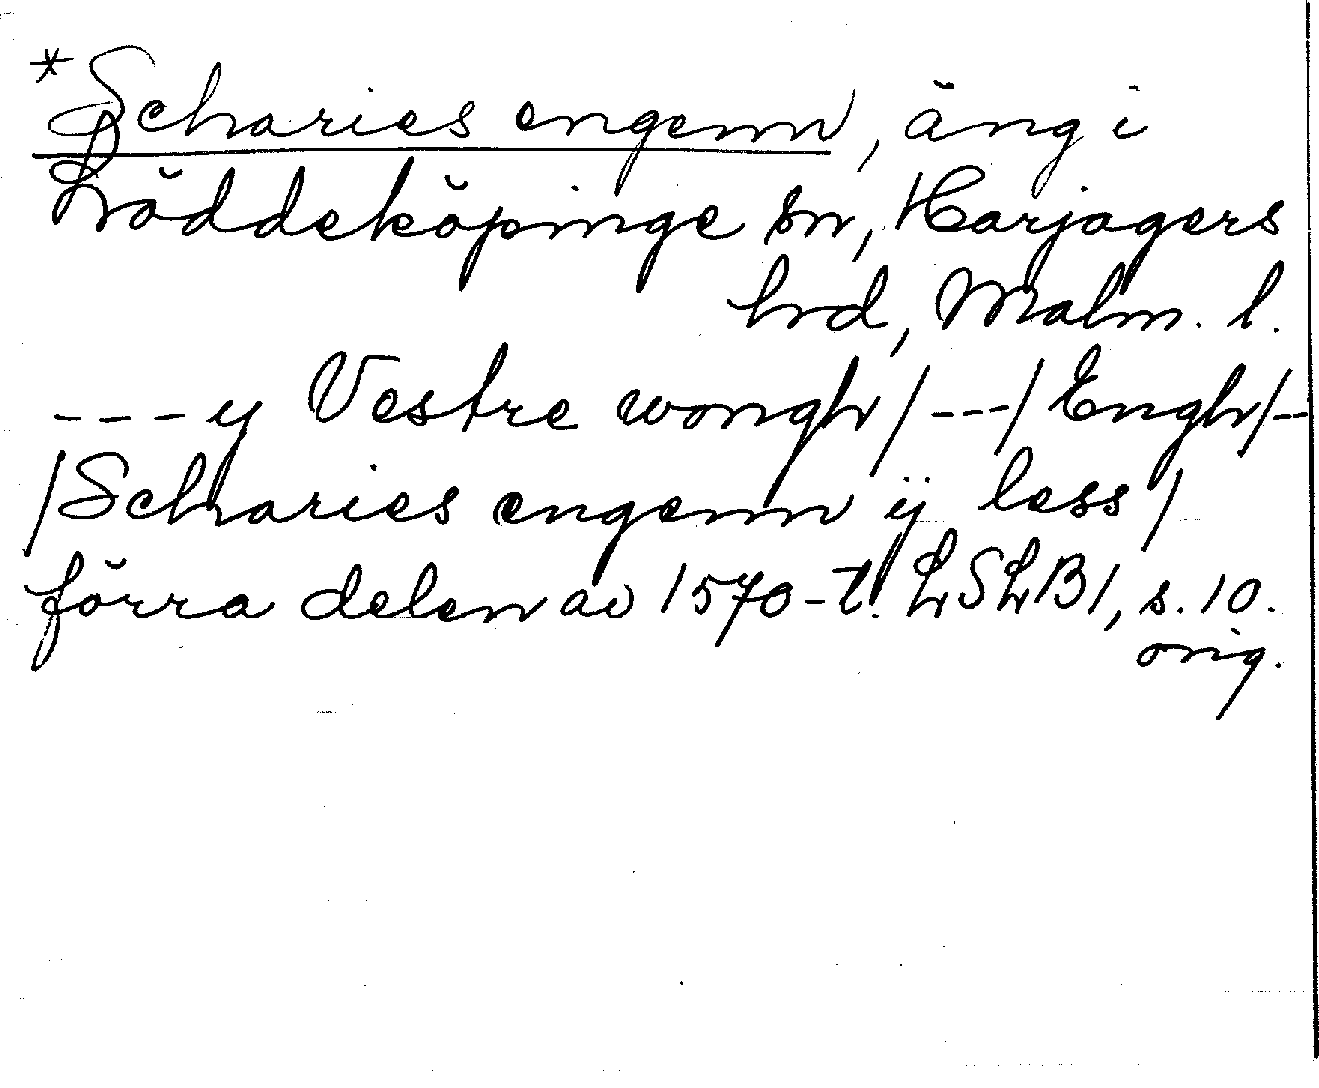 *Scharies engenn, äng i
Löddeköpinge sn, Harjagers
hrd, Malm. l.
---y Vestre wongh/---/Engh/--
/Scharies engenn ij less/
förra delen av 1570-t. LSLB1, s. 10.
orig.